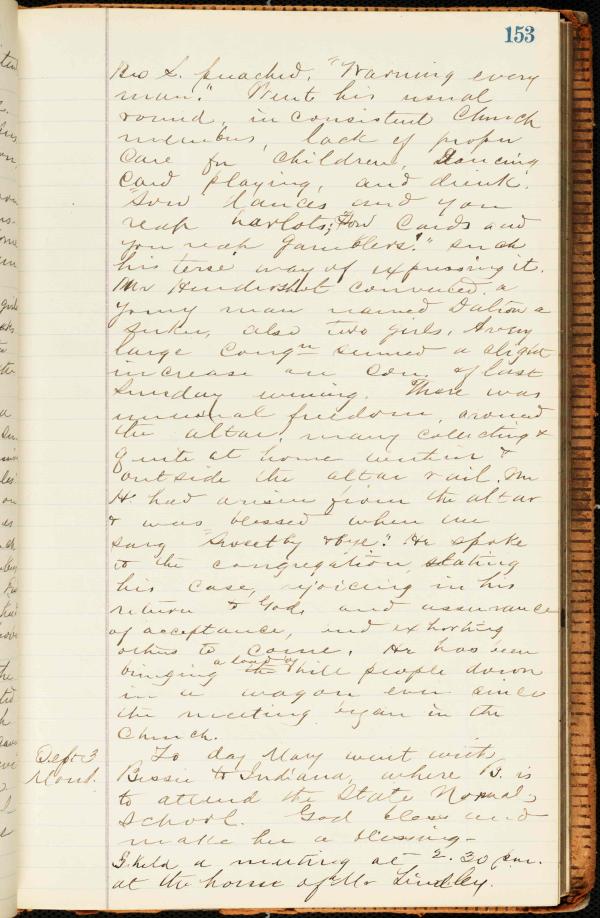 153
Bro S. preached, "Warning every
man." Went his usual
round, inconsistent Church
members, lack of proper
care for children, Dancing
Card playing, and drink.
"Sow dances and you
reap harlots; Sow Cards and
you reap Gamblers!" such
his terse way of expressing it.
Mr Hendershot convinced a
young man named Dalton a
seeker, also two girls. A very
large Congn seemed a slight
increase on Con. of last
Sunday evening. There was
unusual freedom around
the altar, many collecting &
quite at home within &
outside the altar rail. Mr
H. had arisen from the altar
& was blessed when we
sang "Sweet by & bye." He spoke
to the congregation, stating
his case, rejoicing in his
return to God, and assurance
of acceptance, and exhorting
others to come. He has been
bringing a load of the hill people down
in a wagon ever since
the meeting began in the
Church.
Sept 3 To day Mary went with
Mond. Bessie to Indiana, where B. is
to attend the State Normal
School. God bless and
make her a blessing -
I held a meeting at 2.30 p.m.
at the home of Mr Lindley.